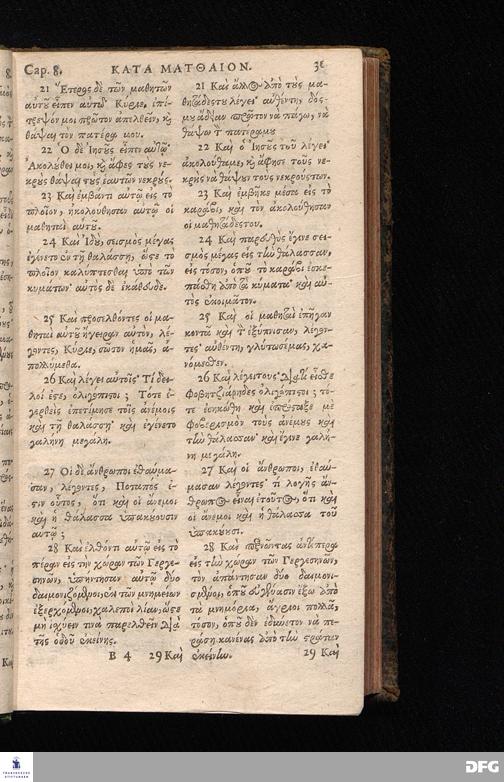 Cap. 8. ΚΑΤΑ ΜΑΤΘΑΙΟΝ.
21 Ἕτερος δὲ τῶν μαθητῶν
αὐτοῦ εἶπεν αὐτῷ· Κύριε, ἐπί-
τρεψόν μοι πρῶτον ἀπελθεῖν, καὶ
θάψαι τὸν πατέρα μου.
22 Ὁ δὲ Ἰησοῦς εἶπεν αὐτῷ·
Ἀκολούθει μοι, καὶ ἄφες τοὺς νε-
κροὺς θάψαι τοὺς ἑαυτῶν νεκρούς.
23 Καὶ ἐμβάντι αὐτῷ εἰς τὸ
πλοῖον, ἠκολούθησαν αὐτῷ οἱ
μαθηταὶ αὐτοῦ.
24 Καὶ ἰδοὺ, σεισμὸς μέγας
ἐγένετο ἐν τῇ θαλάσσῃ, ὥστε τὸ
πλοῖον καλύπτεσθαι ὑπὸ τῶν
κυμάτων· αὐτὸς δὲ ἐκάθευδε.
25 Καὶ προσελθόντες οἱ μα-
θηταὶ αὐτοῦ ἤγειραν αὐτὸν, λέ-
γοντες, Κύριε, σῶσον ἡμᾶς, ἀ-
πολλύμεθα.
26 Καὶ λέγει αὐτοῖς· Τί δει-
λοί ἐστε, ὀλιγόπιστοι; Τότε ἐ-
γερθεὶς ἐπετίμησε τοῖς ἀνέμοις
καὶ τῇ θαλάσσῃ· καὶ ἐγένετο
γαλήνη μεγάλη.
27 Οἱ δὲ ἄνθρωποι ἐθαύμα-
σαν, λέγοντες, Ποταπός ἐ-
στιν οὗτος, ὅτι καὶ οἱ ἄνεμοι
καὶ ἡ θάλασσα ὑπακούουσιν
αὐτῷ;
28 Καὶ ἐλθόντι αὐτῷ εἰς τὸ
πέραν εἰς τὴν χώραν τῶν Γεργε-
σηνῶν, ὑπήντησαν αὐτῷ δύο
δαιμονιζόμενοι, ἐκ τῶν μνημείων
ἐξερχόμενοι, χαλεποὶ λίαν, ὥστε
μὴ ἰσχύειν τινὰ παρελθεῖν διὰ
τῆς ὁδοῦ ἐκείνης.
B 4 29 Καὶ
21 Καὶ ἄλλος ἀπὸ τοὺς μα-
θητάδες του λέγει· αὐθέντη, δός-
μου ἄδειαν πρῶτον νὰ πάγω, νὰ
θάψω τὸν πατέρα μου
22 Καὶ ὁ Ἰησοῦς τοῦ λέγει·
ἀκολούθαμε, καὶ ἄφησε τοὺς νε-
κροὺς νὰ θάψουν τοὺς νεκρούς των.
23 Καὶ ἐμβῆκε μέσα εἰς τὸ
καράβι, καὶ τὸν ἀκολούθησαν
οἱ μαθητάδες του.
24 Καὶ παρευθὺς ἔγινε σει-
σμὸς μέγας εἰς τὴν θάλασσαν,
εἰς τόσον, ὁποῦ τὸ καράβι ἐσκε-
πάσθη ἀπὸ τὰ κύματα· καὶ αὐ-
τὸς ἐκοιμᾶτον.
25 Καὶ οἱ μαθηταὶ ἐπῆγαν
κοντὰ καὶ τὸν ἐξύπνισαν, λέγον-
τες· αὐθέντη, γλύτωσέ μας, χα-
νόμεσθεν.
26 Καὶ λέγει τους· Διατὶ εἶσθε
φοβητζιάρηδες ὀλιγόπιστοι; τό-
τε ἐσηκώθη καὶ ἐπρόσταξε μὲ
φοβερισμὸν τοὺς ἀνέμους καὶ
τὴν θάλασσαν· καὶ ἔγινε γαλή-
νη μεγάλη.
27 Καὶ οἱ ἄνθρωποι, ἐθαύ-
μασαν λέγοντες· τὶ λογῆς ἄν-
θρωπος εἶναι ἐτοῦτος, ὅτι καὶ
οἱ ἄνεμοι καὶ ἡ θάλασσα τοῦ
ὑπακούσι.
28 Καὶ περνῶντας ἀντίπερα
εἰς τὴν χώραν τῶν Γεργεσηνῶν,
τὸν ἀπάντησαν δύο δαιμονι-
σμένοι, ὁποῦ εὐγένασιν ἔξω ἀπὸ
τὰ μνημόρια, ἄγριοι πολλὰ,
τόσον, ὁποῦ δὲν ἐδύνετον νὰ πε-
ράσῃ κανένας ἀπὸ τὴν στράταν
ἐκείνην. 29 Καὶ
FRANCKESCHE STIFTUNGEN
DFG